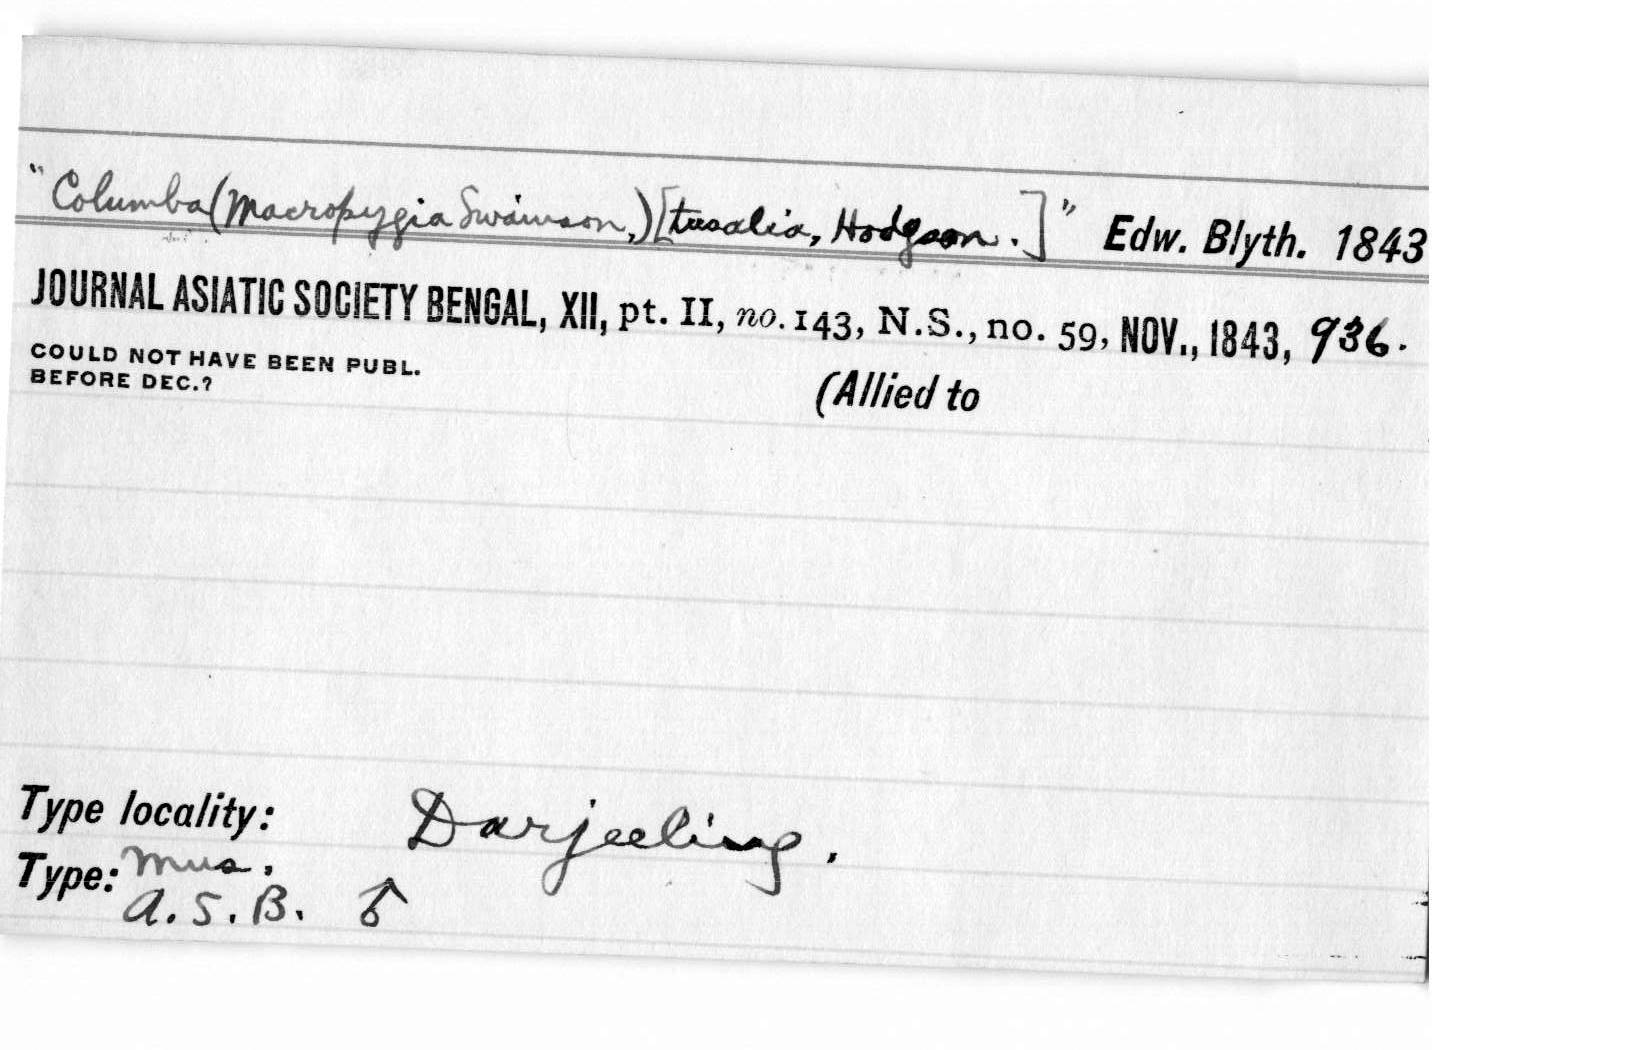 "Columba (Macropygia Swainson,) [tusalia, Hodgson.]" Edw. Blyth. 1843
JOURNAL ASIATIC SOCIETY BENGAL, XII, pt. II, no. 143, N.S., no. 59, NOV., 1843, 936.
COULD NOT HAVE BEEN PUBL.
BEFORE DEC.?
(Allied to
Type locality: Darjeeling.
Type: Mus.
A.S.B. ♂